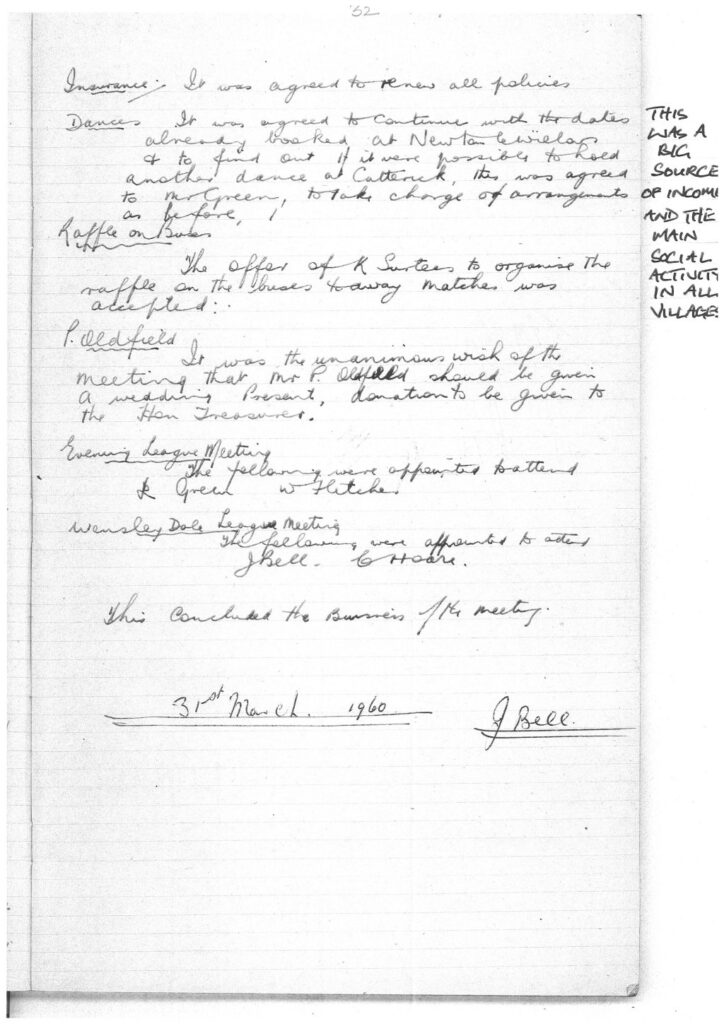 52
Insurance:- It was agreed to renew all policies
Dances It was agreed to continue with the dates
already booked at Newton le Willows
& to find out if it were possible to hold
another dance at Catterick, this was agreed
to Mr Green, to take charge of arrangements
as before,
Raffle on Buses
The offer of K Surtees to organise the
raffle on the buses to away matches was
accepted:
P. Oldfield
It was the unanimous wish of the
meeting that Mr P. Oldfield should be given
a wedding Present, donation to be given to
the Hon Treasurer.
Evening League Meeting
The following were appointed to attend
Green W Fletcher
Wensley Dale League Meeting
The following were appointed to attend
J Bell. C Hoare.
This concluded the Business of the meeting.
31st March. 1960
J Bell.
THIS
WAS A
BIG
SOURCE
OF INCOME
AND THE
MAIN
SOCIAL
ACTIVITY
IN ALL
VILLAGES